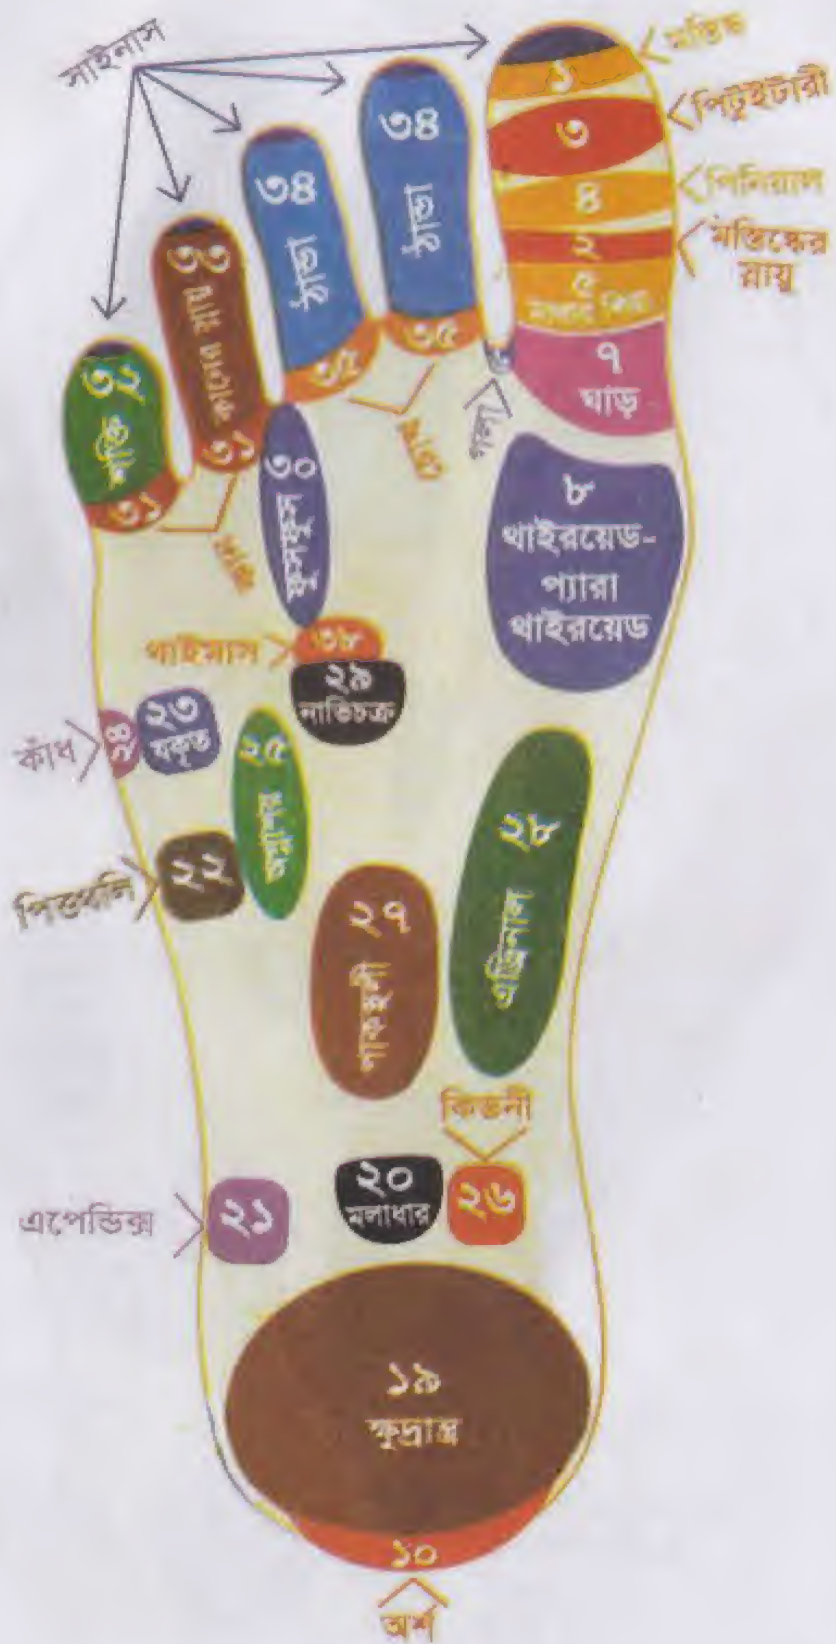 সাইনাস
মস্তিষ্ক
১
পিটুইটারী
৩
পিনিয়াল
৪
মস্তিষ্কের
স্নায়ু
২
৫
৭
ঘাড়
গলা
৩৪
ঠান্ডা
৩৫
৩৪
ঠান্ডা
৩৫
চোখ
৩৩
কানের স্নায়ু
৩১
৩২
শক্তি
৩১
কান
৩০
ফুসফুস
৮
থাইরয়েড-
প্যারা
থাইরয়েড
থাইমাস
৩৮
২৯
নাভিচক্র
কাঁধ
২৪
২৩
যকৃত
২৫
অগ্নাশয়
২৮
এড্রিনাল
পিত্তথলি
২২
২৭
পাকস্থলী
কিডনী
এপেন্ডিক্স
২১
২০
মলাধার
২৬
১৯
ক্ষুদ্রান্ত্র
১০
অর্শ